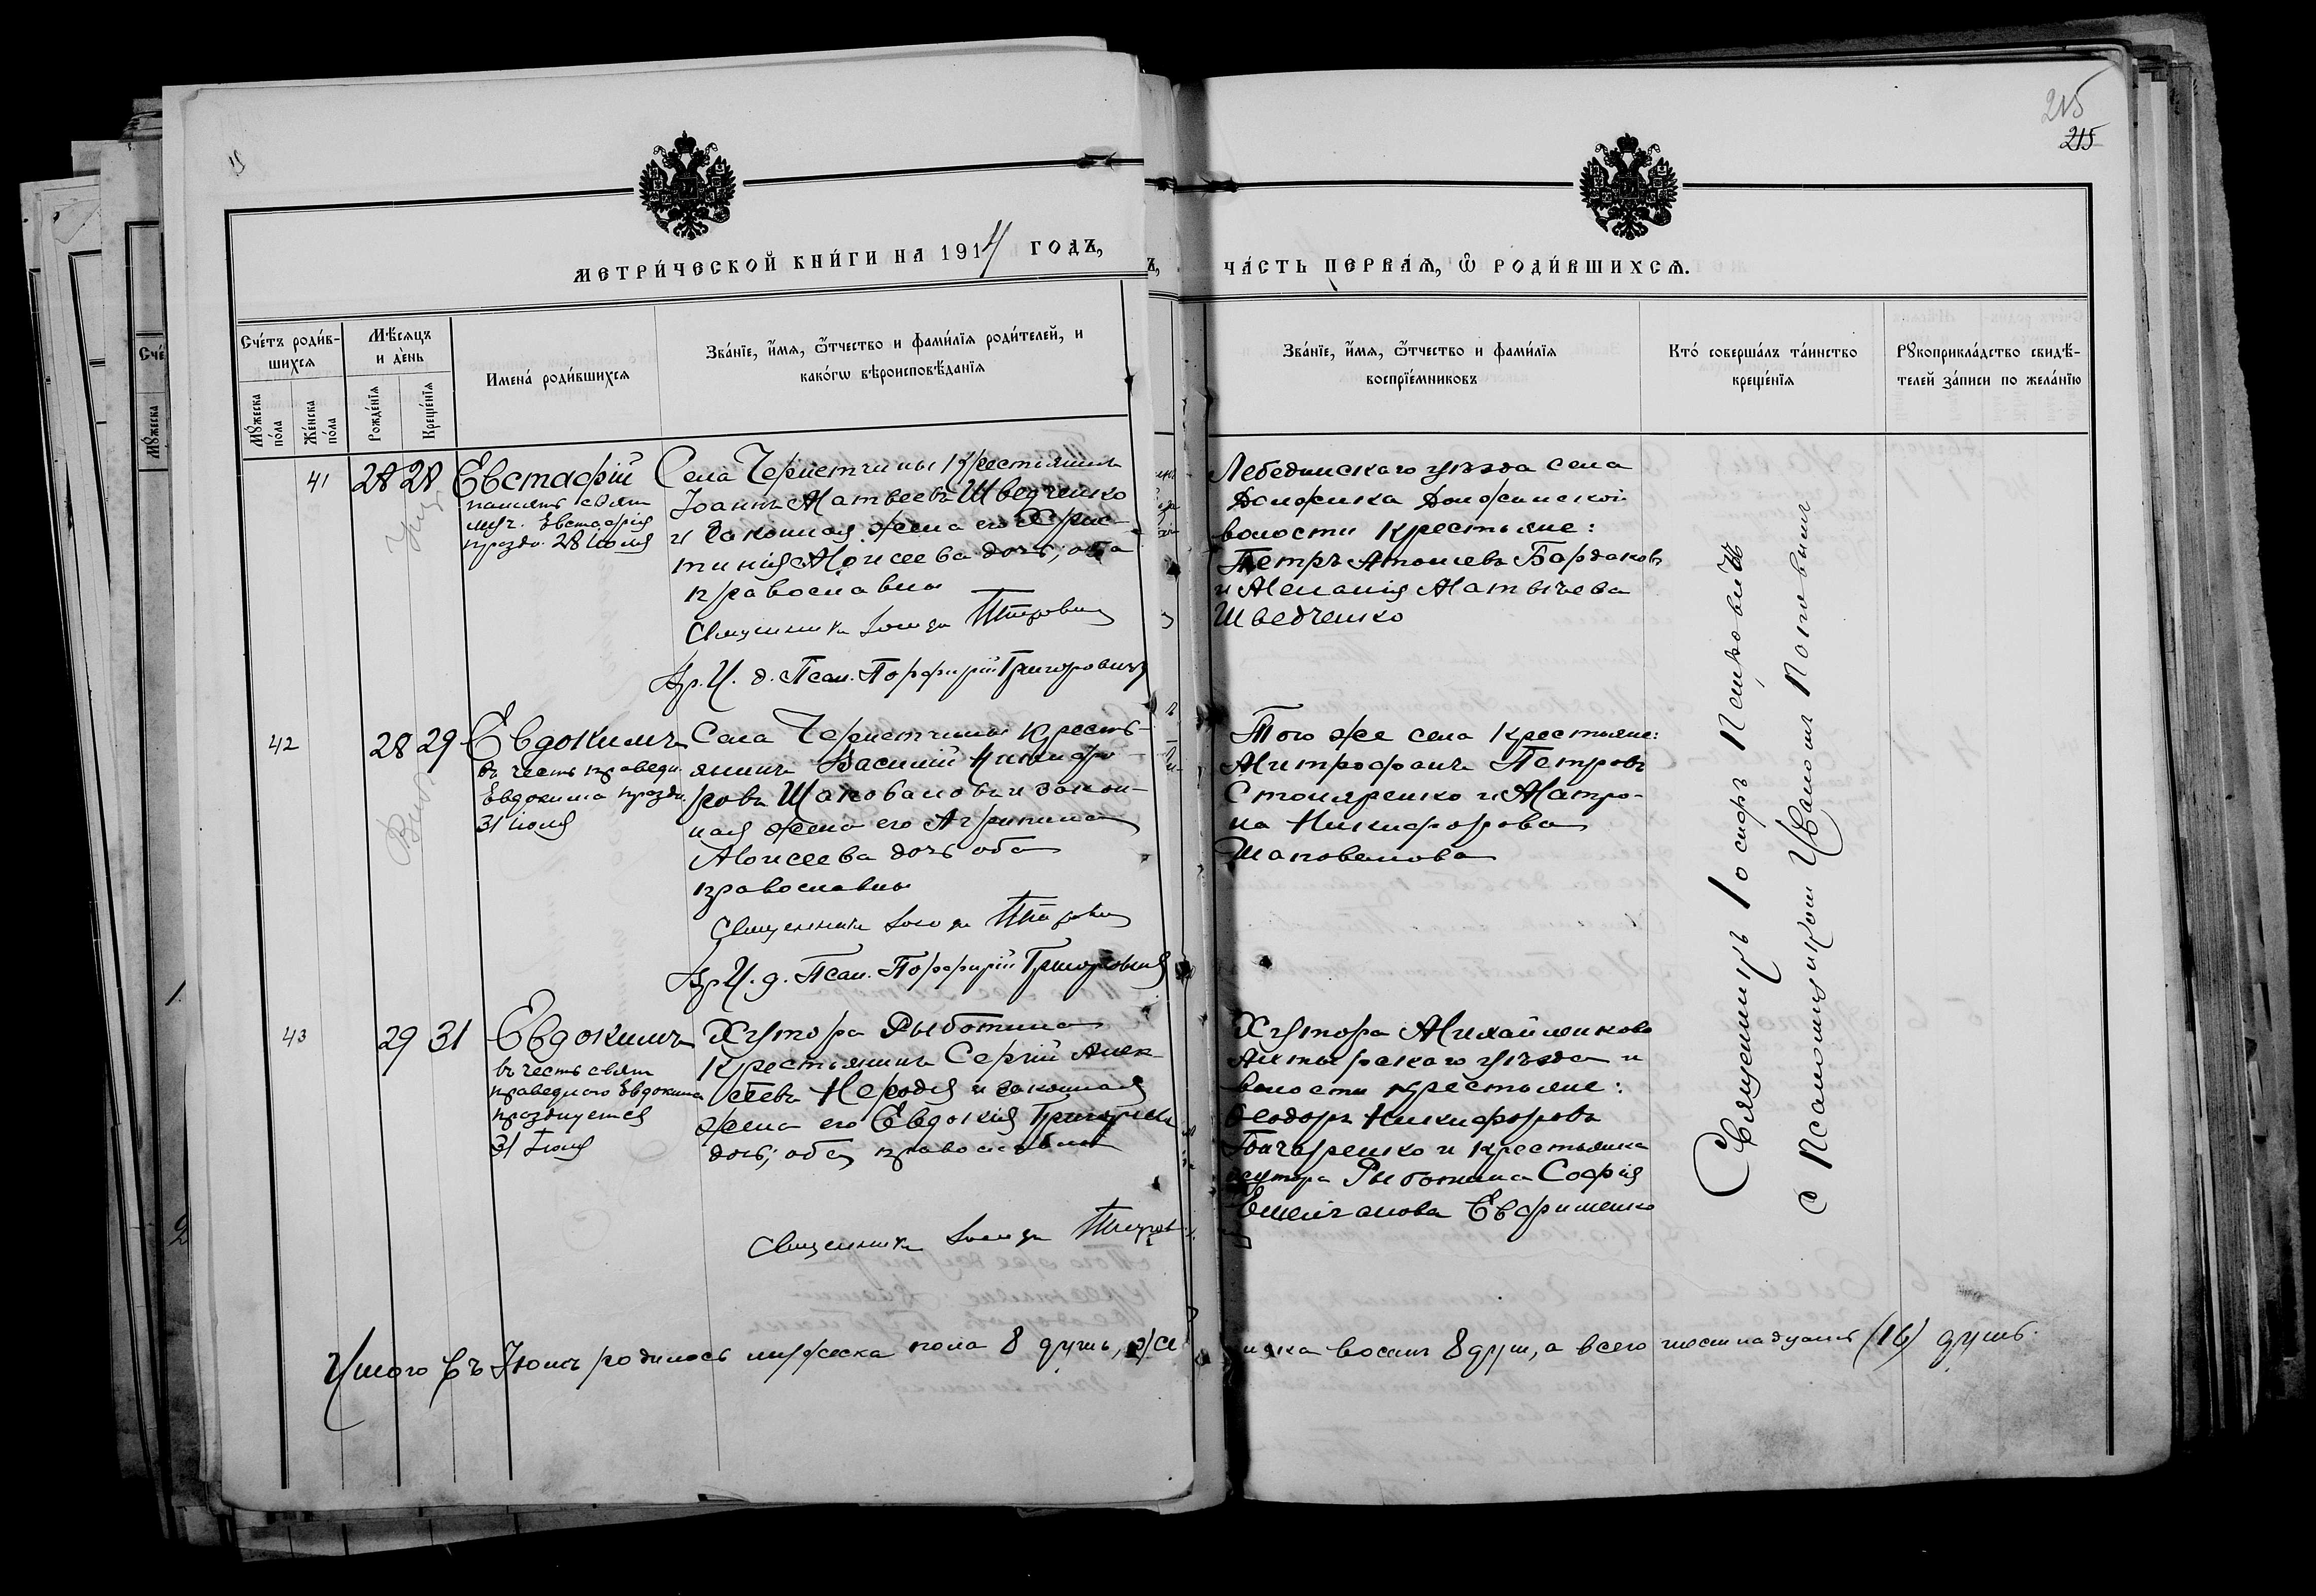 215
215
МЕТРИ́ЧЕСКОЙ КНИ́ГИ НА 1914 ГОДЪ,
ЧА́СТЬ ПЕРВА́Ѧ, Ѽ РОДИ́ВШИХСѦ.
Сче́тъ роди́в-
шихсѧ
Мѣ́сѧцъ
и де́нь
Мꙋ́жеска
по́ла
Же́нска
по́ла
Рожде́нїѧ
Креще́нїѧ
Имена́ роди́вшихсѧ
Зва́нїе, и́мѧ, ѻ҆́тчество и фами́лїѧ роди́телей, и
како́гѡ вѣроисповѣ́данїѧ
Зва́нїе, и́мѧ, ѻ҆́тчество и фами́лїѧ
воспрїе́мниковъ
Кто́ соверша́лъ та́инство
креще́нїѧ
Рꙋкоприкла́дство свидѣ́-
телей за́писи по жела́нїю
41 28 28 Евстафій
память свят.
муч. Евстафія
праздн. 28 іюля
Села Чернетчины крестьянинъ
Іоаннъ Матвеевъ Шведченко
и законная жена его Хрис-
тинія Моисеева дочь; оба
православны
Священникъ Іосифъ Петровичъ
Вр. И. д. Псал. Порфирій Григоровичъ
Лебединскаго уѣзда села
волости крестьяне:
Петръ Бардаковъ
и Меланія Матвѣева
Шведченко
42 28 29 Евдокимъ
въ честь праведн.
Евдокима праздн.
31 іюля
Села Чернетчины кресть-
янинъ Василій Никифо-
ровъ Шаповаловъ и закон-
ная жена его Агрипина
Моисеева дочь оба
православны
Священникъ Іосифъ Петровичъ
Вр. И. д. Псал. Порфирій Григоровичъ
Того же села крестьяне:
Митрофанъ Петровъ
Столяренко и Матро-
на Никифорова
Шаповалова
43 29 31 Евдокимъ
въ честь свят.
праведнаго Евдокима
празднуется
31 Іюля
Хутора Рыботина
крестьянинъ Сергій Алек-
сѣевъ Нерода и законная
жена его Евдокія
дочь; оба православны
Священникъ Іосифъ Петровичъ
Хутора Михайликова
Ахтырскаго уѣзда и
волости крестьяне:
Ѳеодоръ Никифоровъ
Гончаренко и крестьянка
хутора Рыботина Софія
Емельянова Евфименко
Священникъ Іосифъ Петровичъ
съ Псаломщикомъ
Итого въ Іюлѣ родилось мужеска пола 8 душъ, женска восемь 8 душ, а всего шестнадцать (16) душъ.